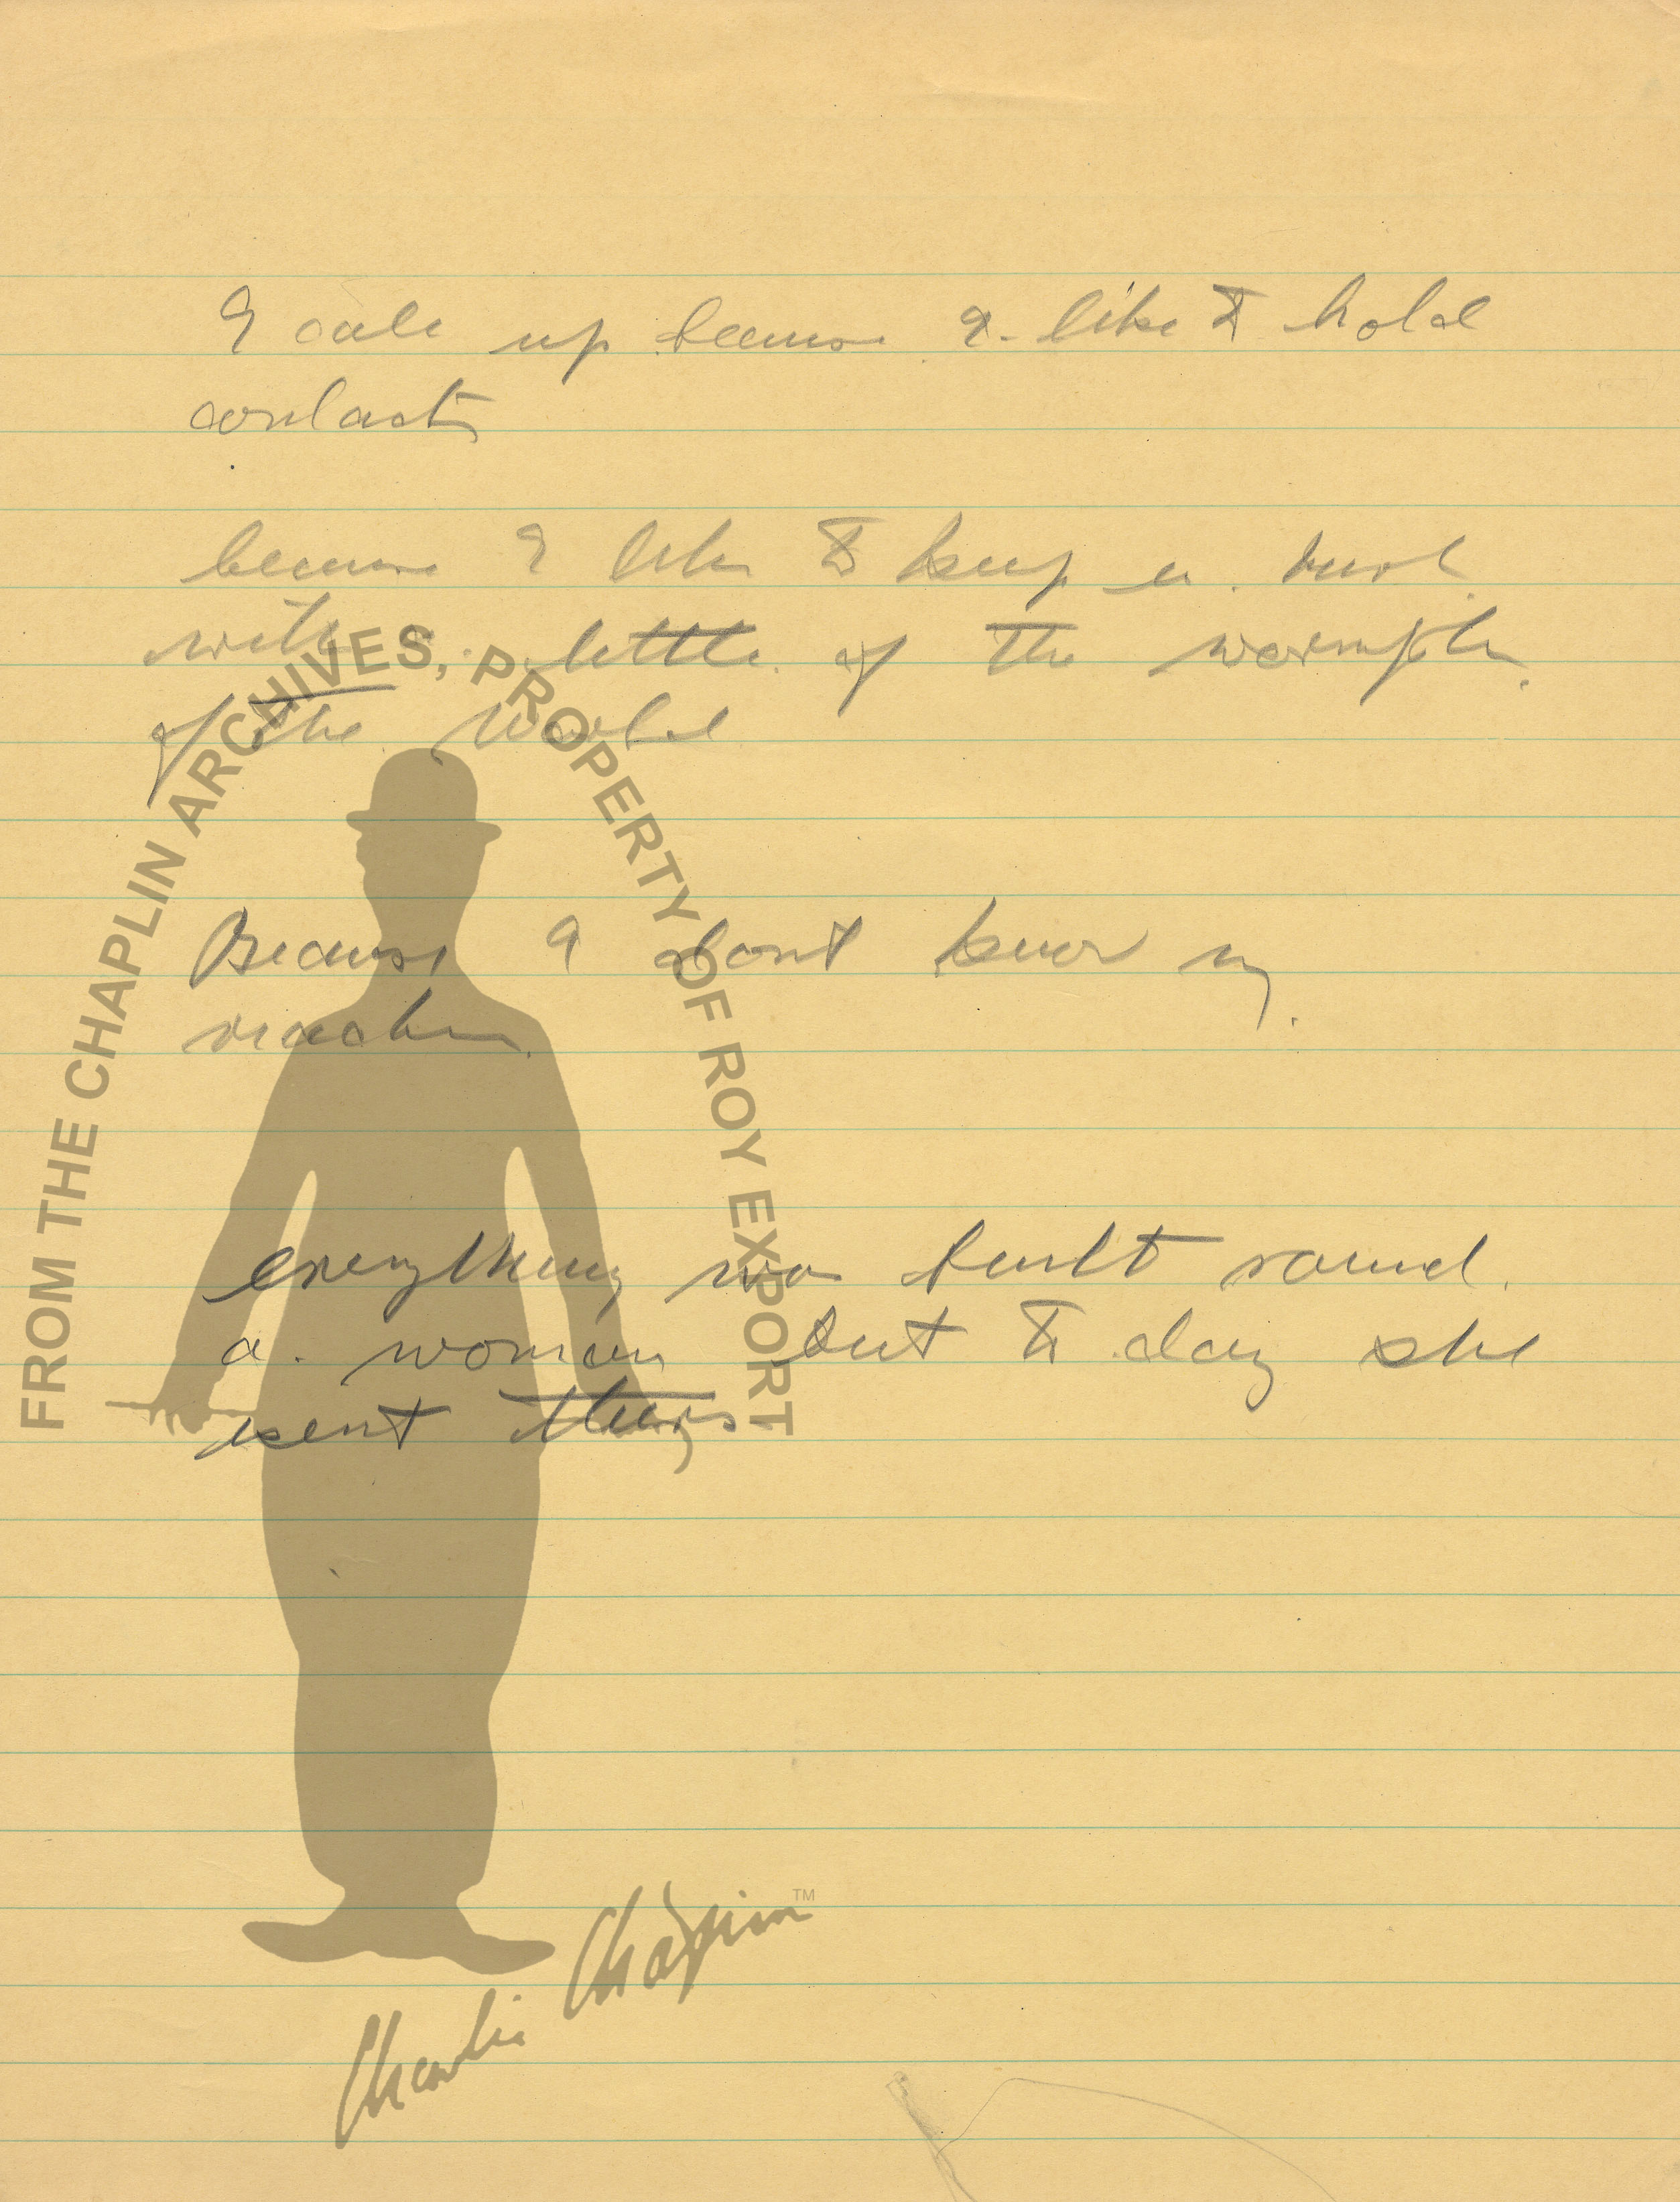 I call up because I like to hold
contact
because I like to keep a
with little of the warmth
of the World
Because I dont know my
everything was built round
a woman but to day she
sent things
FROM THE CHAPLIN ARCHIVES, PROPERTY OF ROY EXPORT
Charlie Chaplin™